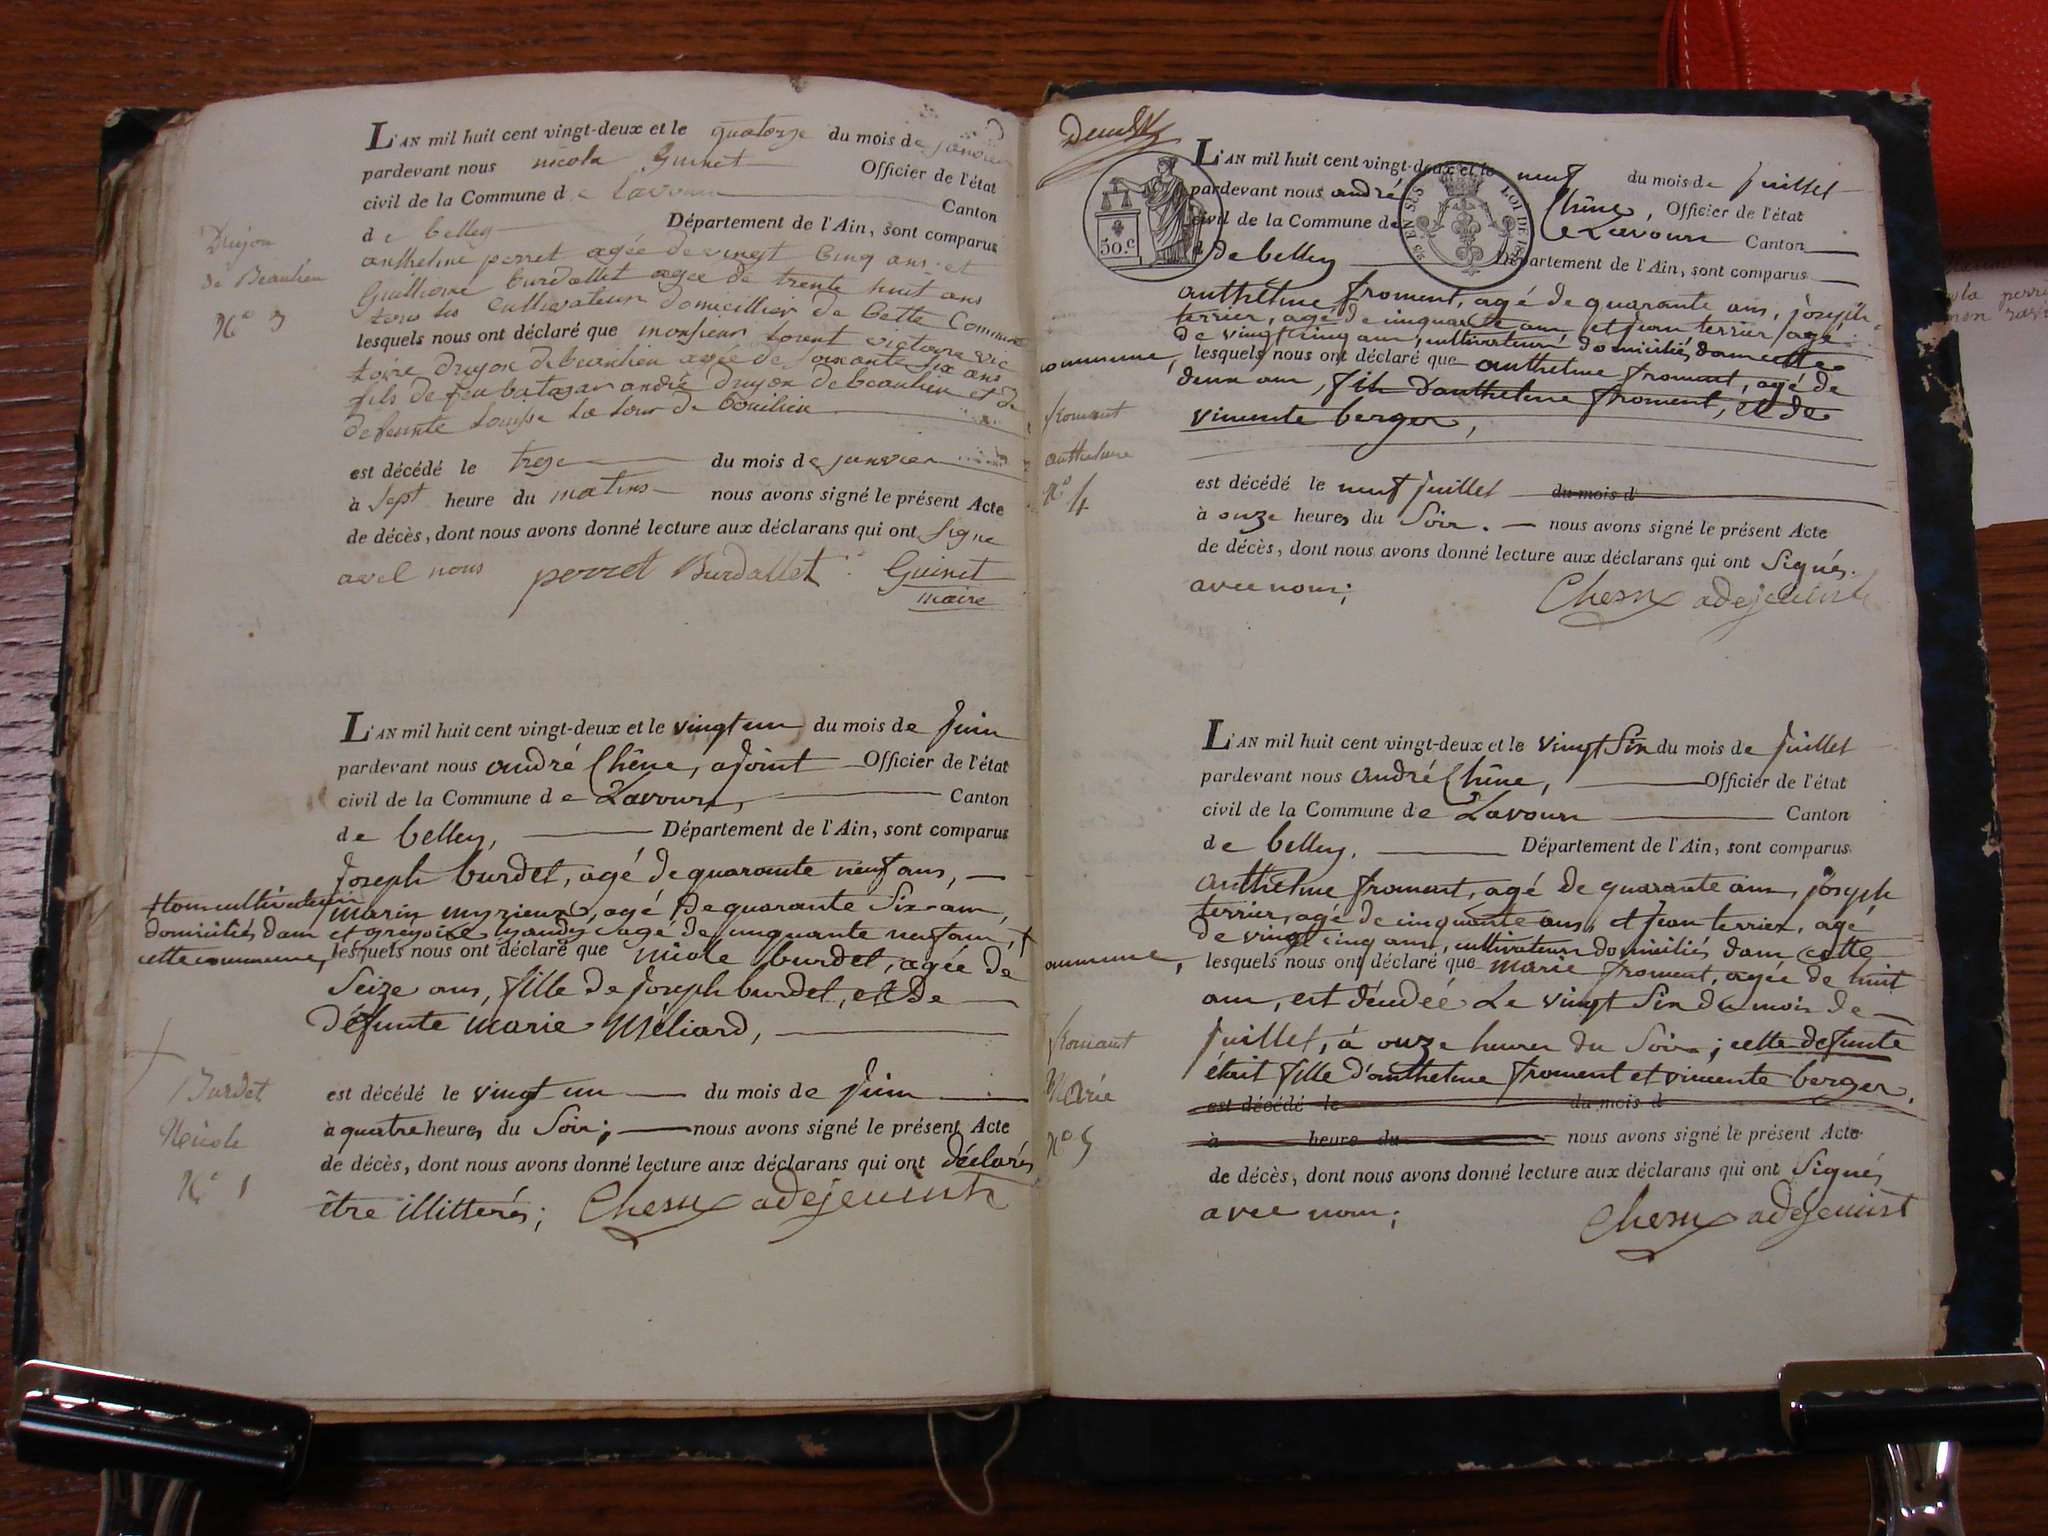 L'AN mil huit cent vingt-deux et le quatorze du mois de janvier
pardevant nous nicola Guinet Officier de l'état
civil de la Commune de lavour Canton
de belley Département de l'Ain, sont comparus
anthelme perret agée de vingt cinq ans et
burdallet agée de trente huit ans
tous les cultivateur domicillier de cette Commune
lesquels nous ont déclaré que monsieur victoire vic
toire drujon debeaulieu agée de soixante six ans
fils de feu batazar andré drujon debeaulieu et de
defeunte Louise La tour de
est décédé le treze du mois de janvier
à Sept heure du matins nous avons signé le présent Acte
de décès, dont nous avons donné lecture aux déclarans qui ont Signe
avec nous perret Burdallet Guinet
maire
Drujon
de Beaulieu
N.o 3
L'AN mil huit cent vingt-deux et le vingt un du mois de Juin
pardevant nous andré Chêne, ajoint Officier de l'état
civil de la Commune de Lavour, Canton
de belley, Département de l'Ain, sont comparus
Joseph burdet, agé de quarante neuf ans,
marin myrieux, agé de quarante Six ans,
et gregoire agé de cinquante neuf ans, +
+ tous cultivateurs
domiciliés dans
cette commune,
lesquels nous ont déclaré que nicole burdet, agée de
Seize ans, fille de Joseph burdet, et de
défunte marie Meliard,
est décédé le vingt un du mois de Juin
à quatre heures du Soir; nous avons signé le présent Acte
de décès, dont nous avons donné lecture aux déclarans qui ont déclarés
être illitterés; Chesne adejeuint
Burdet
Nicole
N.o 1
50.c
EN SUS
LOI DE
L'AN mil huit cent vingt-deux et le neuf du mois de Juillet
pardevant nous andré Chêne, Officier de l'état
civil de la Commune de Lavour Canton
de belley Département de l'Ain, sont comparus
anthelme froment, agé de quarante ans, joseph
terrier, agé de cinquante ans et jean terrier agé
de vingt cinq ans, cultivateurs domiciliés dans cette
commune, lesquels nous ont déclaré que anthelme froment, agé de
deux ans, fils d'anthelme froment, et de
vincente berger,
est décédé le neuf Juillet du mois d
à onze heures du Soir. nous avons signé le présent Acte
de décès, dont nous avons donné lecture aux déclarans qui ont Signés
avec nous; Chesne adejeuint
froment
anthelme
N.o 4
L'AN mil huit cent vingt-deux et le vingt Six du mois de Juillet
pardevant nous andré Chêne, Officier de l'état
civil de la Commune de Lavour Canton
de belley, Département de l'Ain, sont comparus
anthelme froment, agé de quarante ans, joseph
terrier, agé de cinquante ans, et jean terrier, agé
de vingt cinq ans, cultivateurs domiciliés dans cette
commune, lesquels nous ont déclaré que marie froment, agée de huit
ans, est décedée Le vingt Six du mois de
Juillet, à onze heures du Soir; cette defunte
était fille d'anthelme froment et vincente berger.
est décédé le du mois d
à heure du nous avons signé le présent Acte
de décès, dont nous avons donné lecture aux déclarans qui ont Signés
avec nous; Chesne adejeuint
froment
Marie
N.o 5